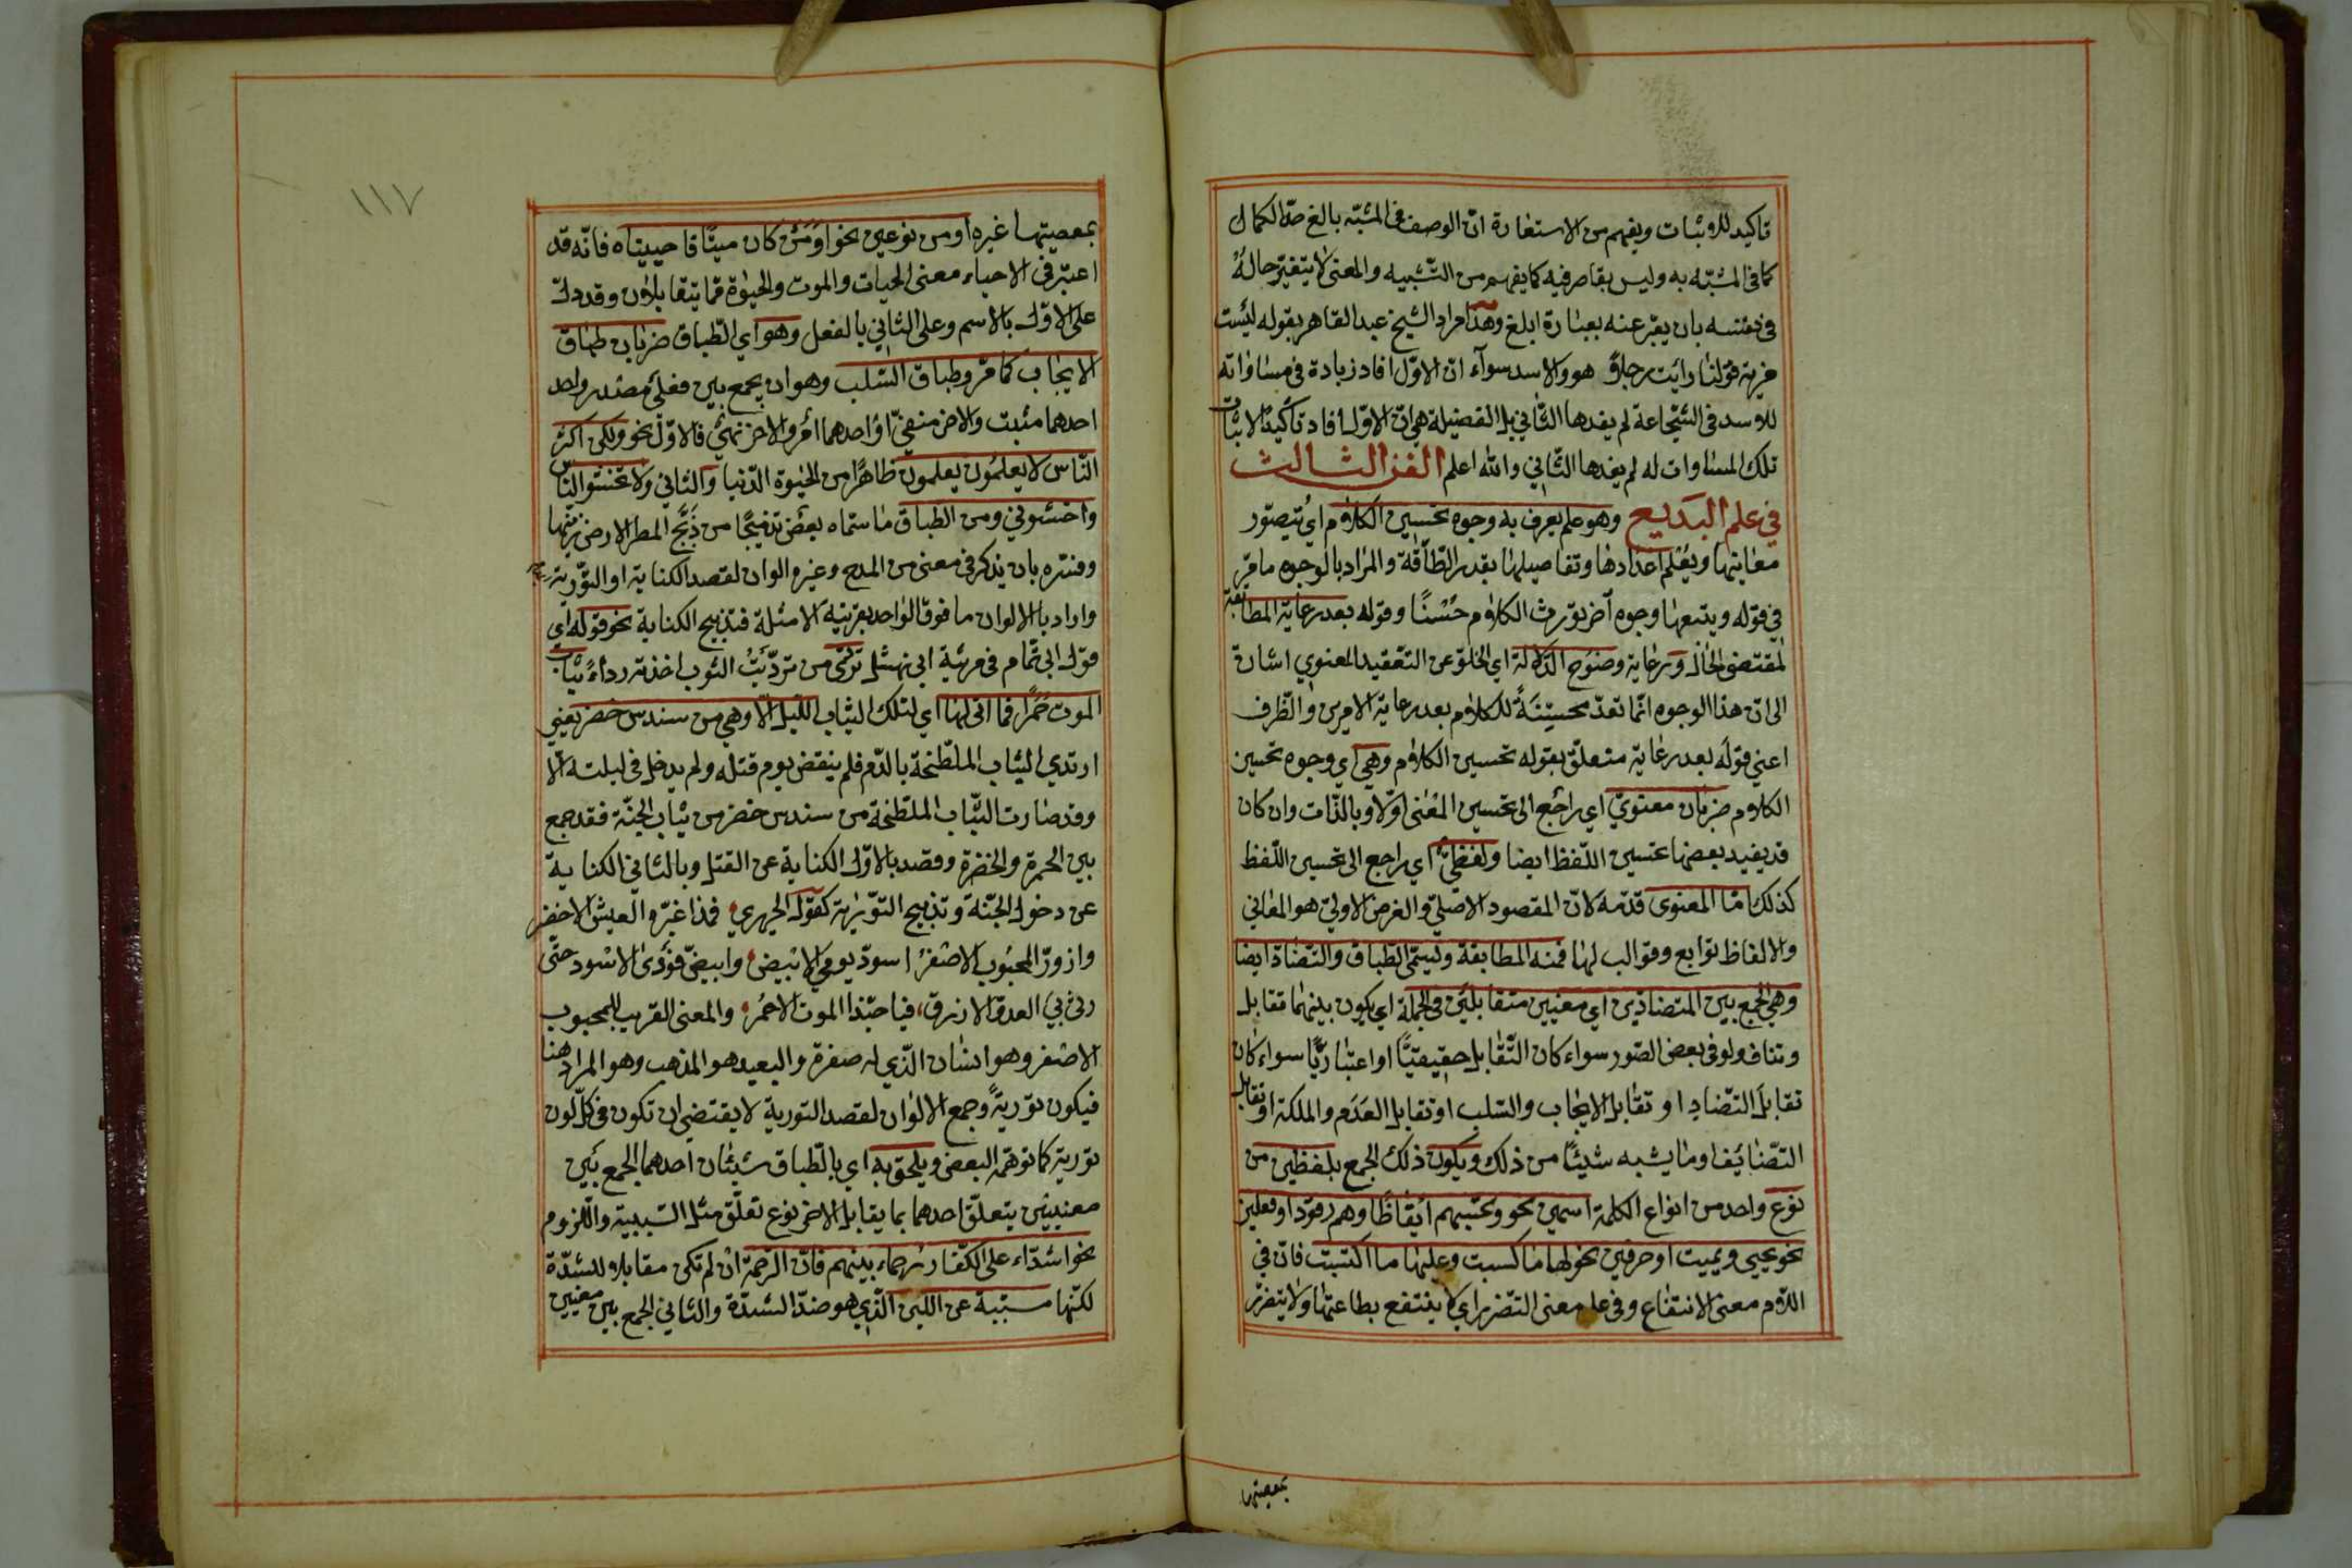 تاكيد للاثبات ويفهم من الاستعارة انّ الوصف فى المشبّه بالغ حدّ الكمال
كما فى المشبّه به وليس بقاصر فيه كما يفهم من التّشبيه والمعنى لا يتغيّر حالهُ
فى نفسه بان يعبّر عنه بعبارة ابلغ وهذا مراد الشيخ عبد القاهر بقوله ليست
مزية قولنا رايت رجلاً هو والاسد سوآء انّ الاوّل افاد زيادة فى مساواته
للاسد فى الشّجاعة لم يفدها الثّاني بل الفضيلة هى انّ الاوّل افاد تاكيد الاثبات
تلك المساوات له لم يفدها الثّاني والله اعلم الفن الثالث
في علم البديع وهو علم يعرف به وجوه تحسين الكلام اي يُتصوّر
معانيها ويُعلم اعدادها وتفاصيلها بقدر الطّاقة والمراد بالوجوه ما مرّ
في قوله ويتبعها وجوه اخر تورث الكلام حُسْنًا وقوله بعد رعاية المطابقة
لمقتضى الحال ورعاية وضوح الدّلالة اي الخلوّ عن التّعقيد المعنوي اشارة
الى ان هذا الوجوه انّما تعدّ محسّنةً للكلام بعد رعاية الامرين والظّرف
اعني قوله بعد رعاية متعلّق بقوله تحسين الكلام وهي اي وجوه تحسين
الكلام ضربان معنويّ اي راجع الى تحسين المعنى اوّلا وبالذّات وان كان
قد يفيد بعضها تحسين اللّفظ ايضا ولفظيّ اي راجع الى تحسين اللّفظ
كذلك امّا المعنوى قدّمه لانّ المقصود الاصليّ والغرض الاوليّ هو المعاني
والالفاظ توابع وقوالب لها فمنه المطابقة وتسمّى الطّباق والتّضادّ ايضا
وهي الجمع بين المتضادّين اي معنيين متقابلين في الجملة اي يكون بينهما تقابل
وتناف ولو في بعض الصّور سواء كان التّقابل حقيقيًّا او اعتباريًّا سواء كان
تقابل التّضاد او تقابل الايجاب والسّلب او تقابل العَدَم والملكة او تقابل
التّضايُف او ما يشبه شيئًا من ذلك ويكون ذلك الجمع بلفظين من
نوع واحد من انواع الكلمة اسمين نحو وتحسبهم ايقاظًا وهم رقود او فعلين
نحو يحيي ويميت او حرفين نحو لها ما كسبت وعليها ما اكتسبت فانّ في
اللام معنى الانتفاع وفى على معنى التّضرر اي لا ينتفع بطاعتها ولا يتضرّر
بمعصيتها
١١٧
بمعصيتها غيره او من نوعين نحو اوَمَنْ كان ميتًا فاحييناه فانّه قد
اعتبر فى الاحياء معنى الحيات والموت والحيوة ممّا يتقابلان وقد دلّ
على الاوّل بالاسم وعلى الثّاني بالفعل وهو اي الطّباق ضربان طباق
الايجاب كما مرّ وطباق السّلب وهو ان يجمع بين فعلَي مصدر واحد
احدهما مثبت والاخر منفيّ او احدهما امر والاخر نهيٌ فالاوّل نحو ولكن اكثر
النّاس لا يعلمون يعلمون ظاهرًا من الحيوة الدّنيا والثاني ولا تخشوا النّاس
واخشوني ومن الطباق ما سمّاه بعضٌ تدبيجًا من دَبَّج المطر الارض زيّنها
وفسّره بان يذكر في معنى من المدح وغيره الوان لقصد الكناية او التّورية
واراد بالالوان ما فوق الواحد بقرينة الامثلة فتدبيج الكناية نحو قوله اي
قول ابي تمّام في مرثية ابي نهشل تردّى من تردّيتُ الثوب اخذته رداءً ثياب
الموت حُمرًا فما اتى لها اي لتلك الثياب اللّيل الّا وهي من سندس خضر يعني
ارتدي الثياب الملطّخة بالدّم فلم ينقض يوم قتله ولم يدخل فى ليلته الّا
وقد صارت الثّياب الملطّخة من سندس خضر من ثياب الجنّة فقد جمع
بين الحمرة والخضرة وقصد بالاوّل الكناية عن القتل وبالثّاني الكناية
عن دخول الجنّة وتدبيج التّورية كقول الحريري فمذ اغبرّ العيش الاخضر
وازورّ المحبوب الاصفرُ اسودّ يومي الابيض وابيضّ فَودىَ الاسود حتّى
رثى لي العدوّ الازرق، فيا حبّذا الموت الاحمُر والمعنى القريب للمحبوب
الاصفر وهو انسان الّذي له صفرة والبعيد هو الذهب وهو المراد هنا
فيكون توريةً وجمع الالوان لقصد التورية لا يقتضي ان تكون في كلّ لون
تورية كما توهّمه البعض ويلحق به اي بالطّباق شيئان احدهما الجمع بين
معنيين يتعلّق احدهما بما يقابل الاخر نوع تعلّق مثل السّببيّة واللّزوم
نحو اشدّاء على الكفّار رحماء بينهم فانّ الرّحمة ان لم تكن مقابله للشدّة
لكنّها مسبّبة عن اللّين الّذي هو ضدّ الشدّة والثاني الجمع بين معنيين